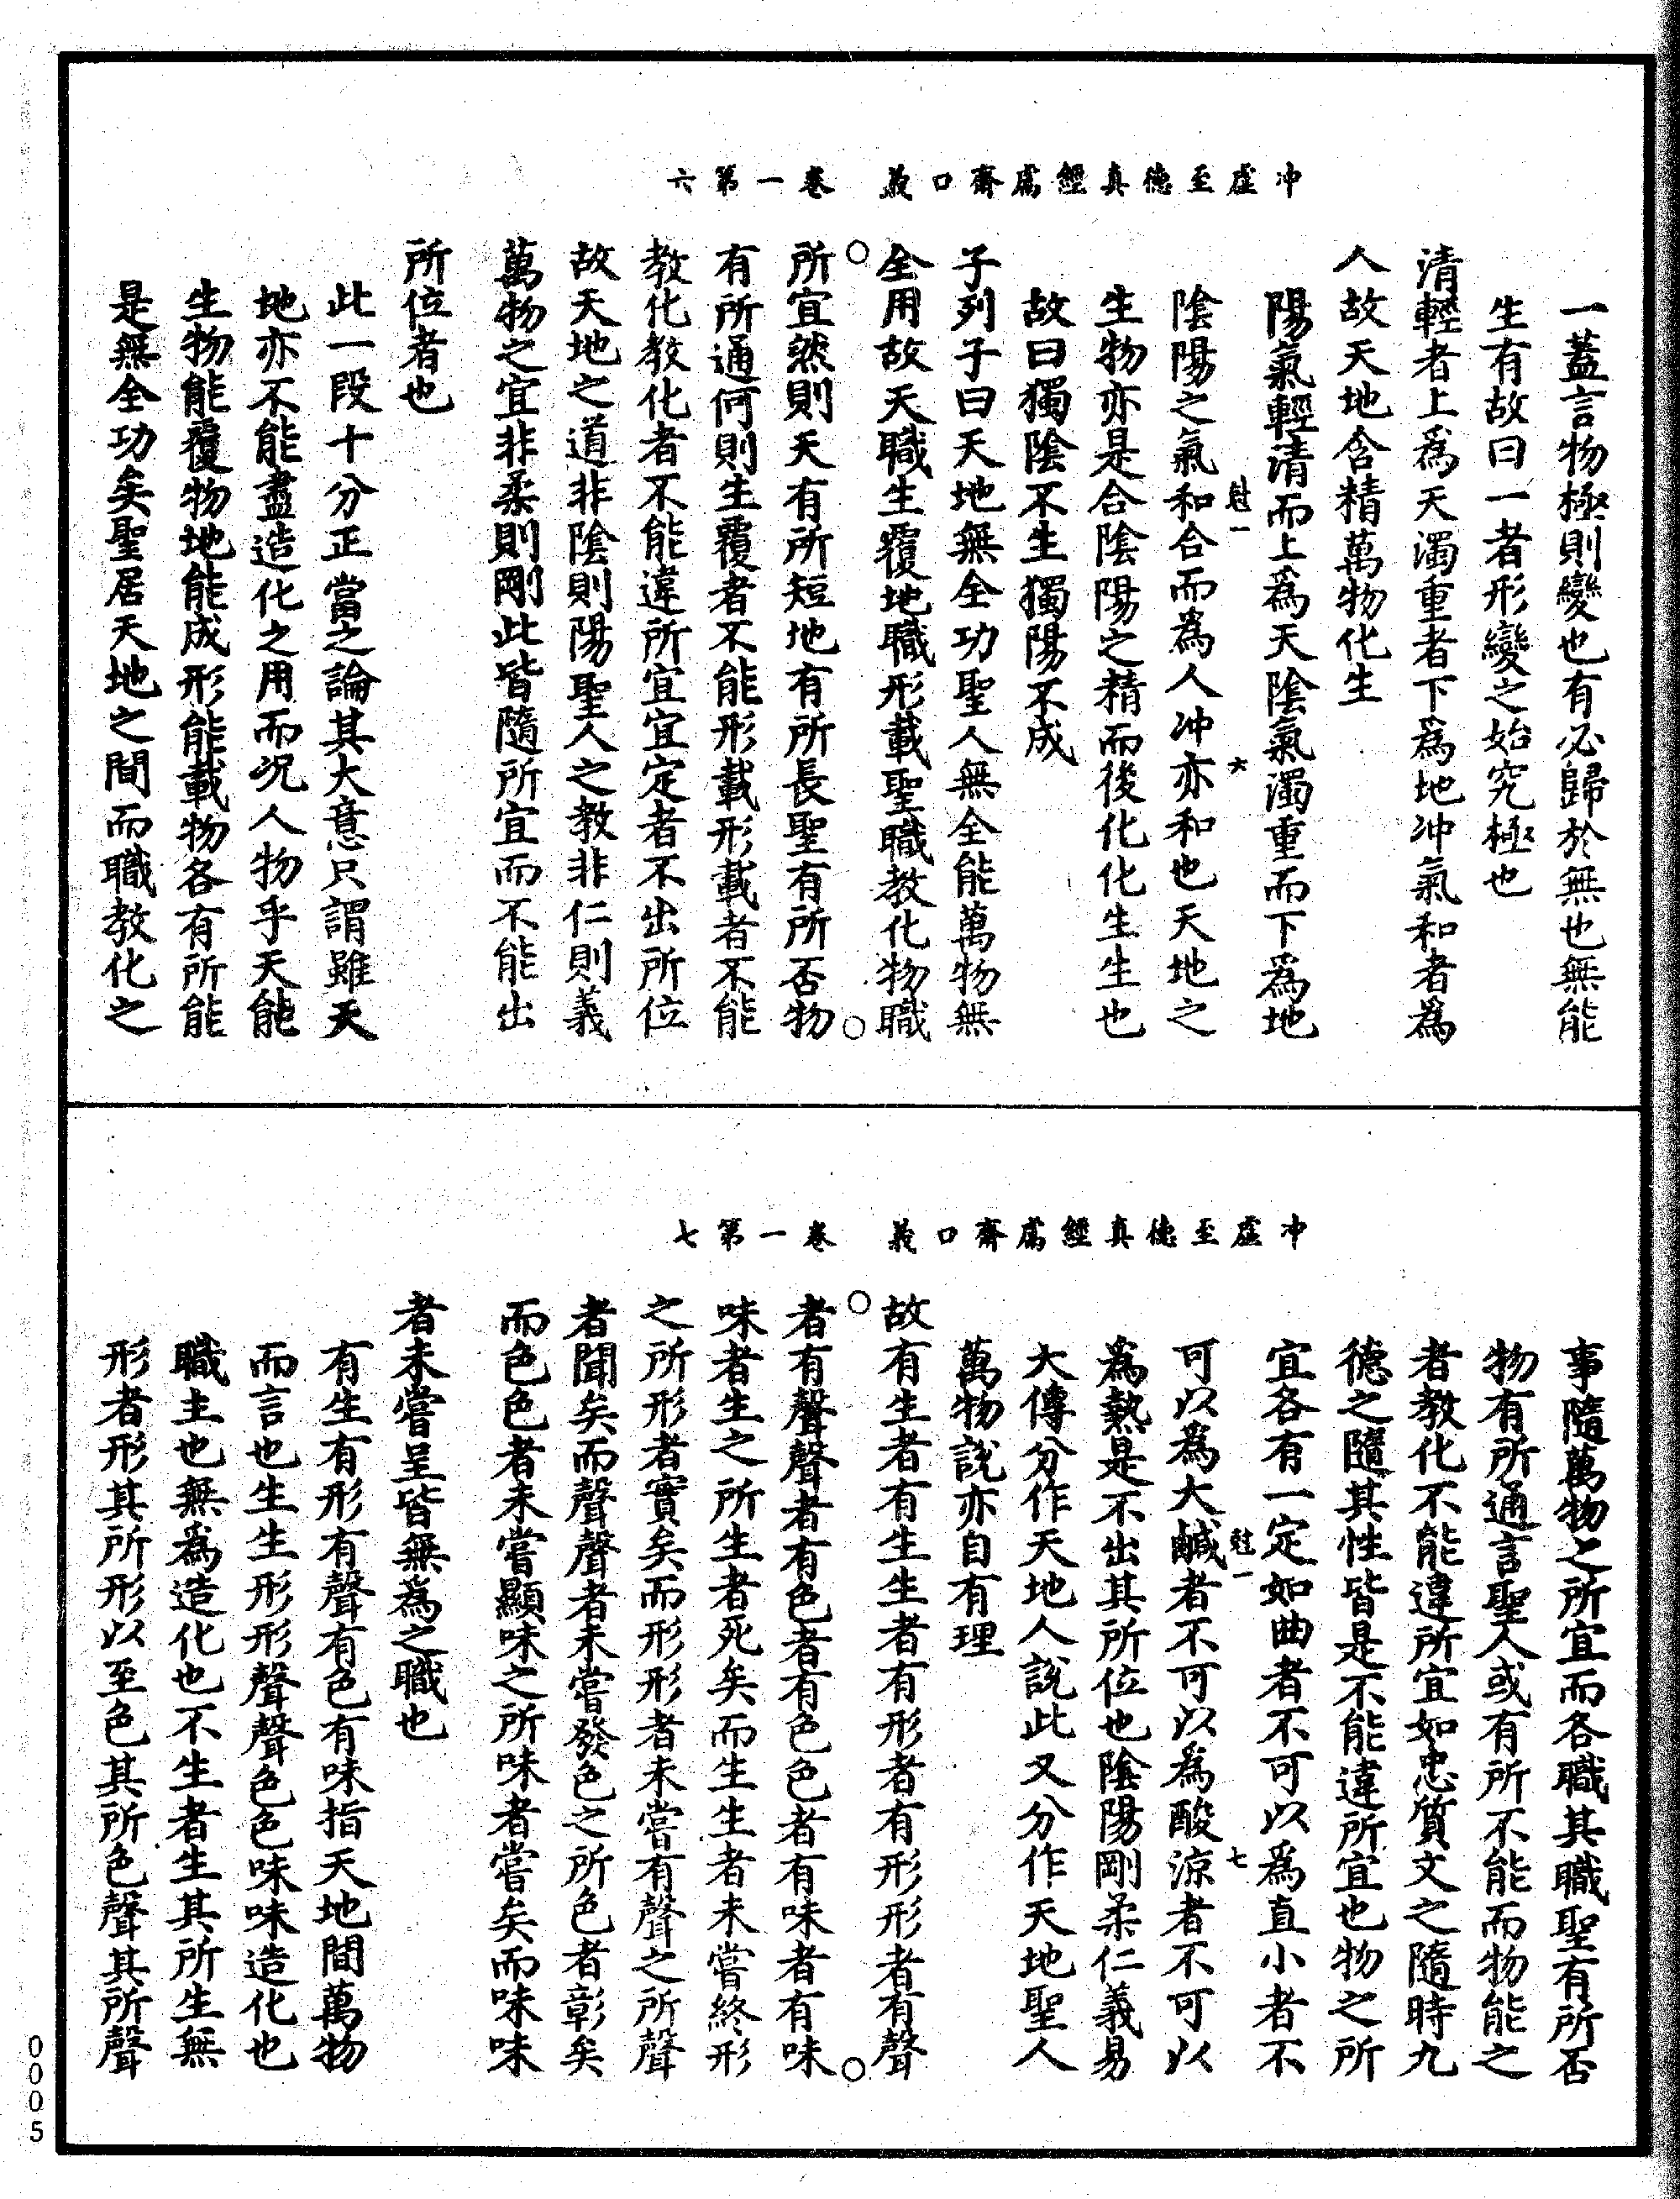 冲虛至德真經鬳齋口義　卷一第六
一蓋言物極則變也有必歸於無也無能
生有故曰一者形變之始究極也
清輕者上爲天濁重者下爲地冲氣和者爲
人故天地含精萬物化生
陽氣輕清而上爲天陰氣濁重而下爲地
一　六
陰陽之氣和合而爲人冲亦和也天地之
生物亦是合陰陽之精而後化化生生也
故曰獨陰不生獨陽不成
子列子曰天地無全功聖人無全能萬物無
全用故天職生覆地職形載聖職教化物職
所宜然則天有所短地有所長聖有所否物
有所通何則生覆者不能形載形載者不能
教化教化者不能違所宜宜定者不出所位
故天地之道非陰則陽聖人之教非仁則義
萬物之宜非柔則剛此皆隨所宜而不能出
所位者也
此一段十分正當之論其大意只謂雖天
地亦不能盡造化之用而况人物乎天能
生物能覆物地能成形能載物各有所能
是無全功矣聖居天地之間而職教化之
冲虛至德真經鬳齋口義　卷一第七
事隨萬物之所宜而各職其職聖有所否
物有所通言聖人或有所不能而物能之
者教化不能違所宜如忠質文之隨時九
德之隨其性皆是不能違所宜也物之所
宜各有一定如曲者不可以爲直小者不
一　七
可以爲大鹹者不可以爲酸涼者不可以
爲熱是不出其所位也陰陽剛柔仁義易
大傳分作天地人說此又分作天地聖人
萬物說亦自有理
故有生者有生生者有形者有形形者有聲
者有聲聲者有色者有色色者有味者有味
味者生之所生者死矣而生生者未嘗終形
之所形者實矣而形形者未嘗有聲之所聲
者聞矣而聲聲者未嘗發色之所色者彰矣
而色色者未嘗顯味之所味者嘗矣而味味
者未嘗呈皆無爲之職也
有生有形有聲有色有味指天地間萬物
而言也生生形形聲聲色色味味造化也
職主也無爲造化也不生者生其所生無
形者形其所形以至色其所色聲其所聲
0005